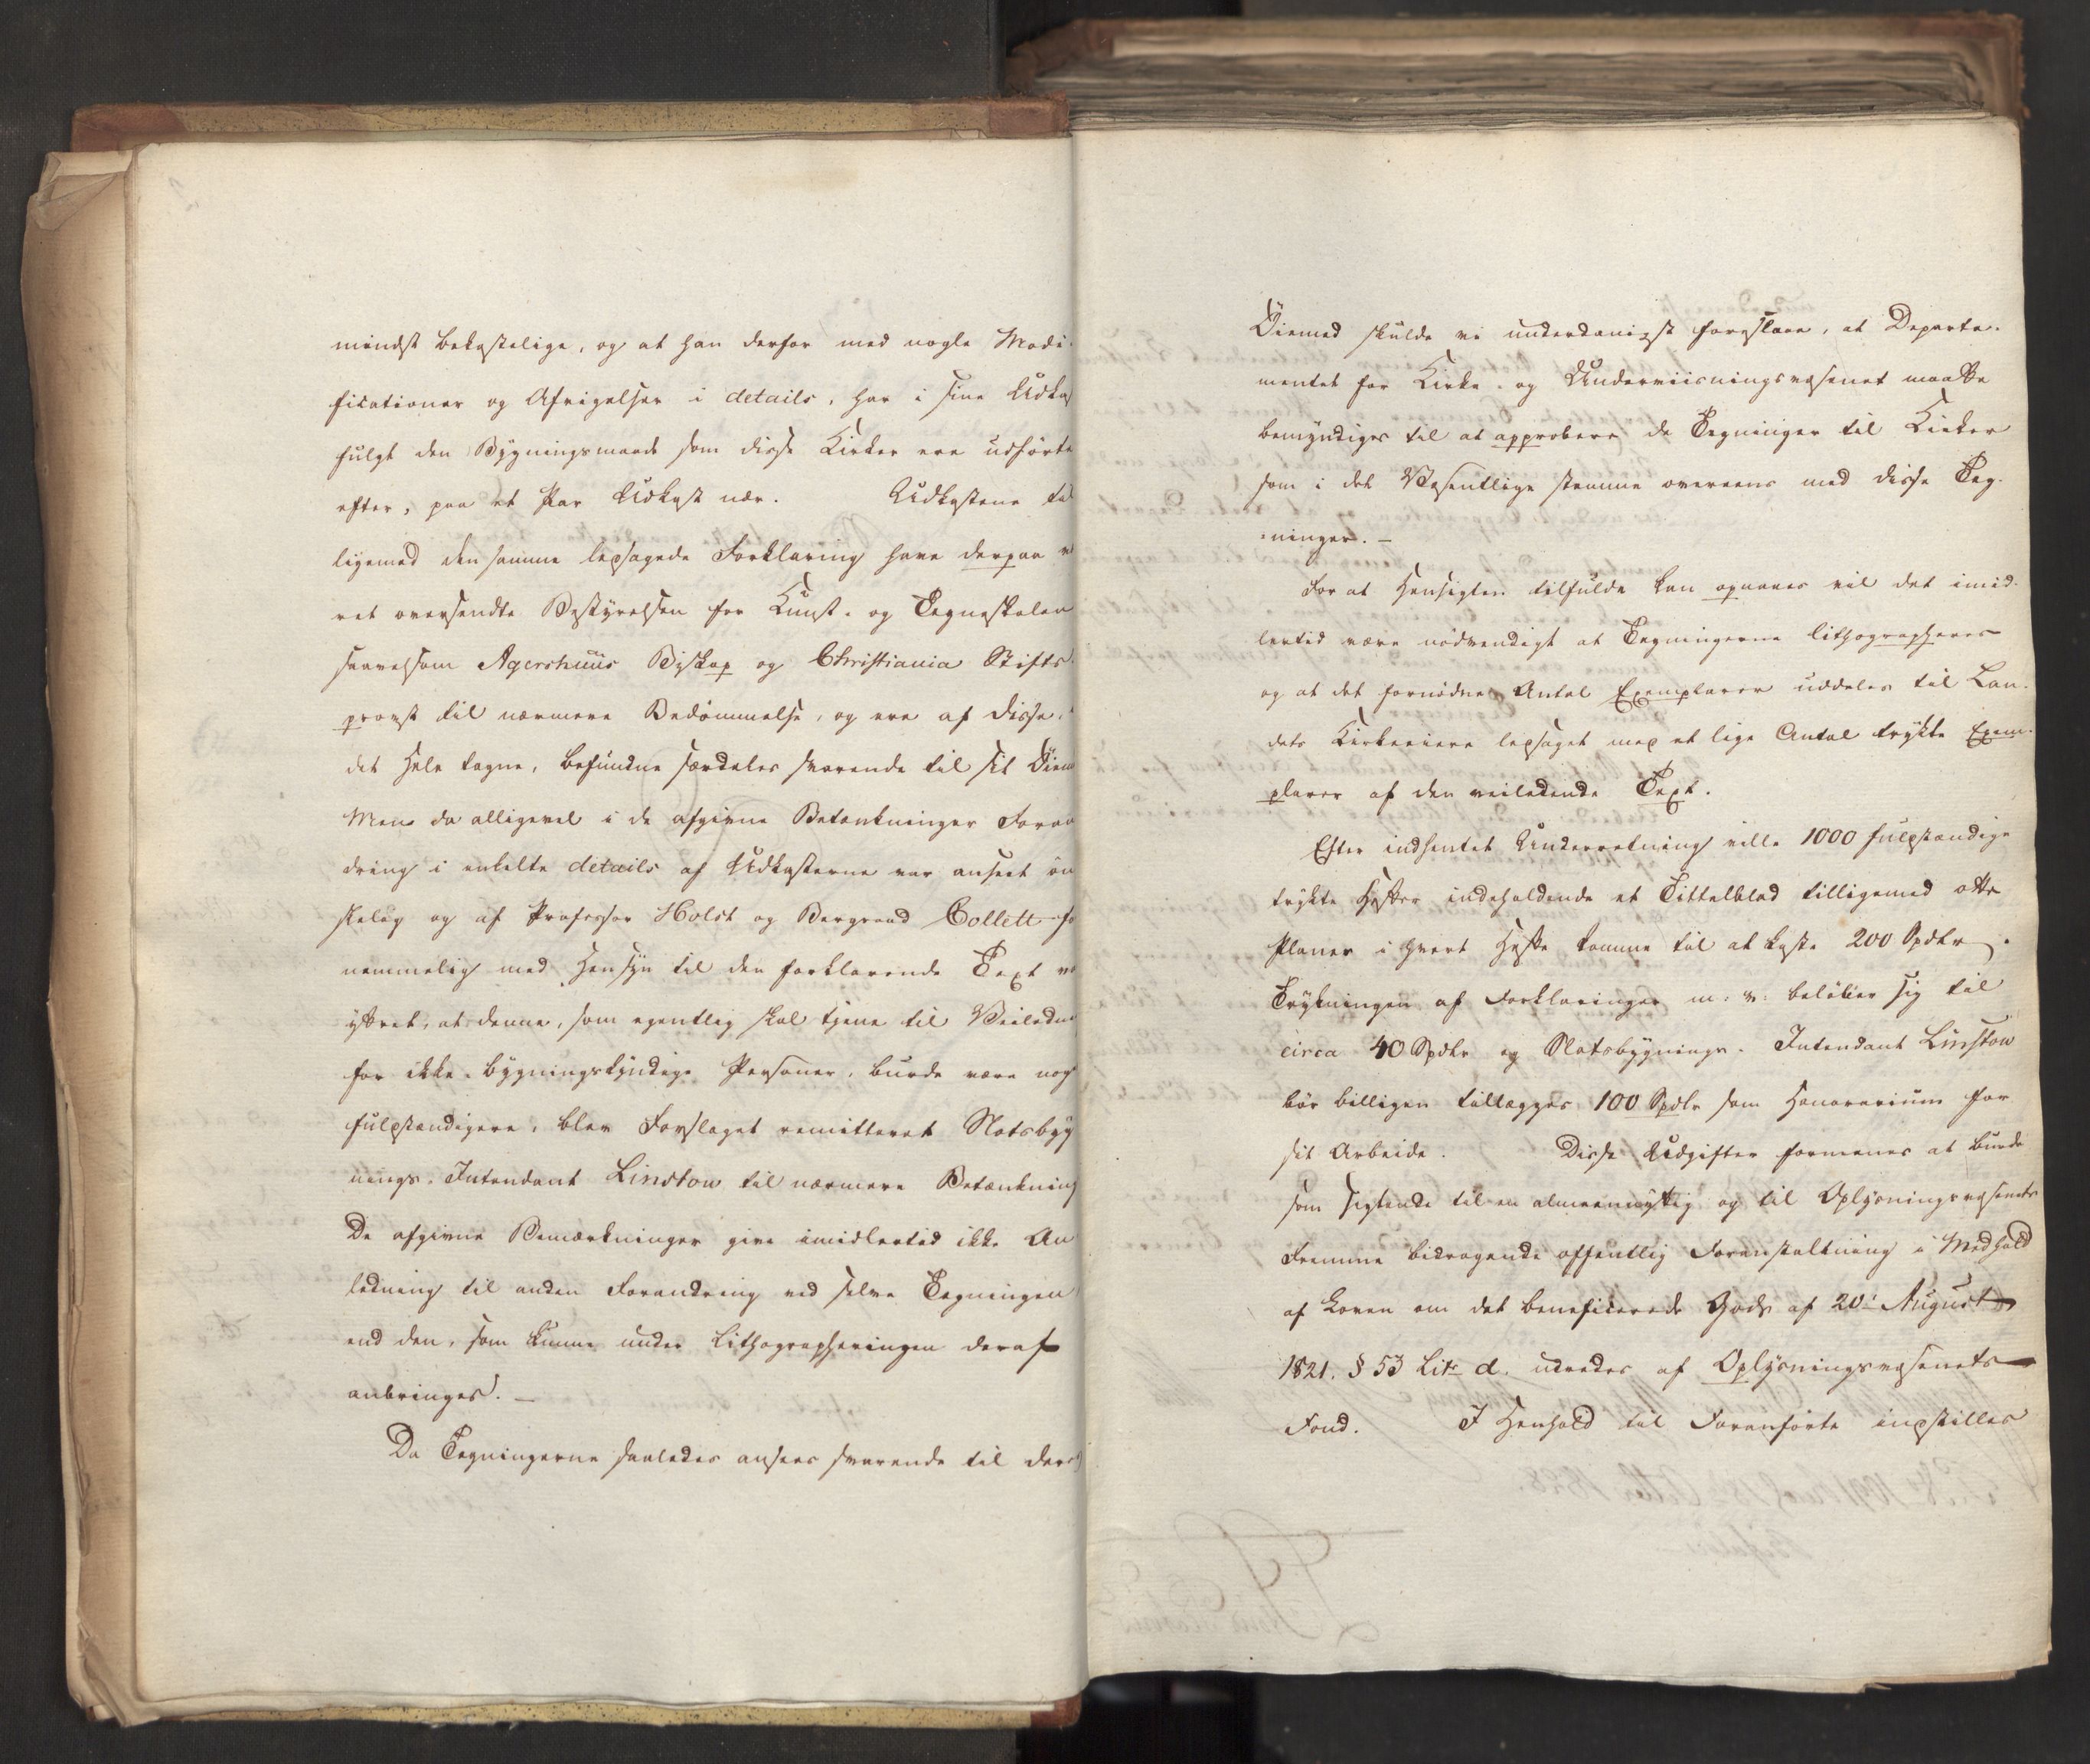 mindst bekostelige, og at han derfor med nogle Modi-
ficationer og Afvigelser i details, har i sine Udkas
fulgt den Bygningsmaade som disse Kirker ere udførte
efter, paa et Par Udkast nær. Udkastene til
ligemed den samme ledsagede Forklaring have derpaa v
ret oversendte Bestyrelsen for Kunst- og Tegneskolen
saavelsom Agershuus Biskop og Christiania Stifts-
provst til nærmere Bedømmelse, og ere af disse, i
det Hele tagne, befundne særdeles svarende til sit Øiem
Men da alligevel i de afgivne Betænkninger Foran
dring i enkelte details af Udkasterne var anseet øn
skelig og af Professor Holst og Bergraad Collett for
nemmelig med Hensyn til den forklarende Text v
yttret, at denne, som egentlig skal tjene til Veiledni
for ikke-bygningskyndige Personer, burde være noget
fuldstændigere, blev Forslaget remitteret Slotsbyg
nings-Intendant Linstow til nærmere Betænkning
De afgivne Bemærkninger give imidlertid ikke An
ledning til anden Forandring ved selve Tegningen
end den, som kunne under Lithographeringen deraf
anbringes. —
Da Tegningerne saaledes ansees svarende til deres
Øiemed skulde vi underdanigst foreslaae, at Departe-
mentet for Kirke- og Underviisningsvæsenet maatte
bemyndiges til at approbere de Tegninger til Kirker
som i det Væsentlige stemme overeens med disse Teg-
ninger. —
For at Hensigten tilfulde kan opnaaes vil det imid-
lertid være nødvendigt at Tegningerne lithographeres
og at det fornødne Antal Exemplarer uddeles til Lan-
dets Kirkeeiere ledsaget med et lige Antal trykte Exem-
plarer af den veiledende Text.
Efter indhentet Underretning ville 1000 fuldstændige
trykte Hefter indeholdende et Tittelblad tilligemed otte
Planer i hvert Hefte komme til at koste 200 Spdlr.
Trykningen af Forklaringer m: v: beløber sig til
circa 40 Spdlr og Slotsbygnings-Intendant Linstow
bør billigen tillægges 100 Spdlr som Honorarium for
sit Arbeide. Disse Udgifter formenes at burde
som sigtende til en almeennyttig og til Oplysningsvæsenets
Fremme bidragende offentlig Foranstaltning i Medhold
af Loven om det beneficerede Gods af 20: August
1821. § 53 Litr d. udredes af Oplysningsvæsenets
Fond. I Henhold til Foranførte indstilles